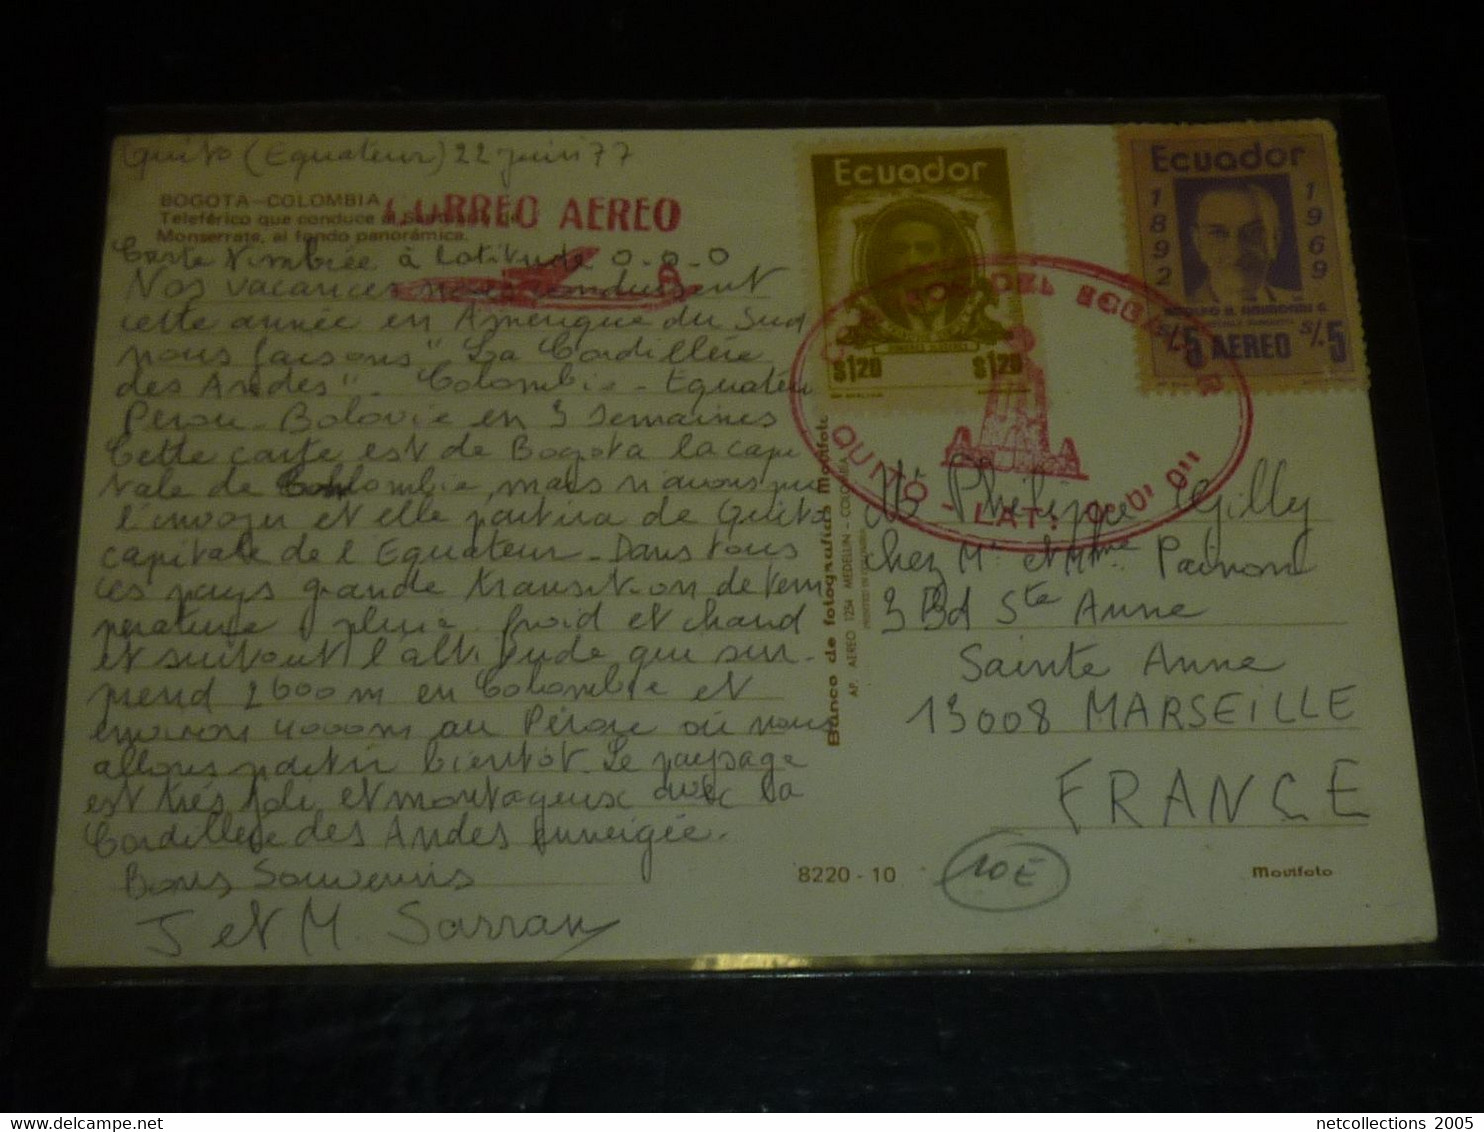 Quito (Equateur) 22 juin 77
BOGOTA - COLOMBIA
Teleférico que conduce al Santuario de
Monserrate, al fondo panorámica.
CORREO AEREO
Carte timbrée à latitude 0-0-0
Nos vacances nous conduisent
cette année en Amérique du Sud
nous faisons "La Cordillère
des Andes" - Colombie - Equateur
Pérou - Bolovie en 3 semaines
Cette carte est de Bogota la capi
tale de Collombie, mais n'avons pu
l'envoyer et elle partira de Quito
capitale de l'Equateur - Dans tous
ces pays grande transition de tem
pérature, pluie, froid et chaud
et surtout l'altitude qui sur-
prend 2600m en Colombie et
environ 4000m au Pérou où nous
allons partir bientôt. Le paysage
est très joli et montageux avec la
Cordillère des Andes enneigée.
Bons Souvenirs
J et M. Sarran
Banco de fotografías Movifoto
AP. AEREO 1254 MEDELLIN - COLOMBIA
Ecuador
S/1,20
S/1,20
Ecuador
1892
1969
S/.5 AEREO S/.5
QUITO - LAT: 0°0'0"
Mr Philippe Gilly
chez Mr et Mme
3 Bd Ste Anne
Sainte Anne
13008 MARSEILLE
FRANCE
8220 - 10
10E
Movifoto
netcollections 2005